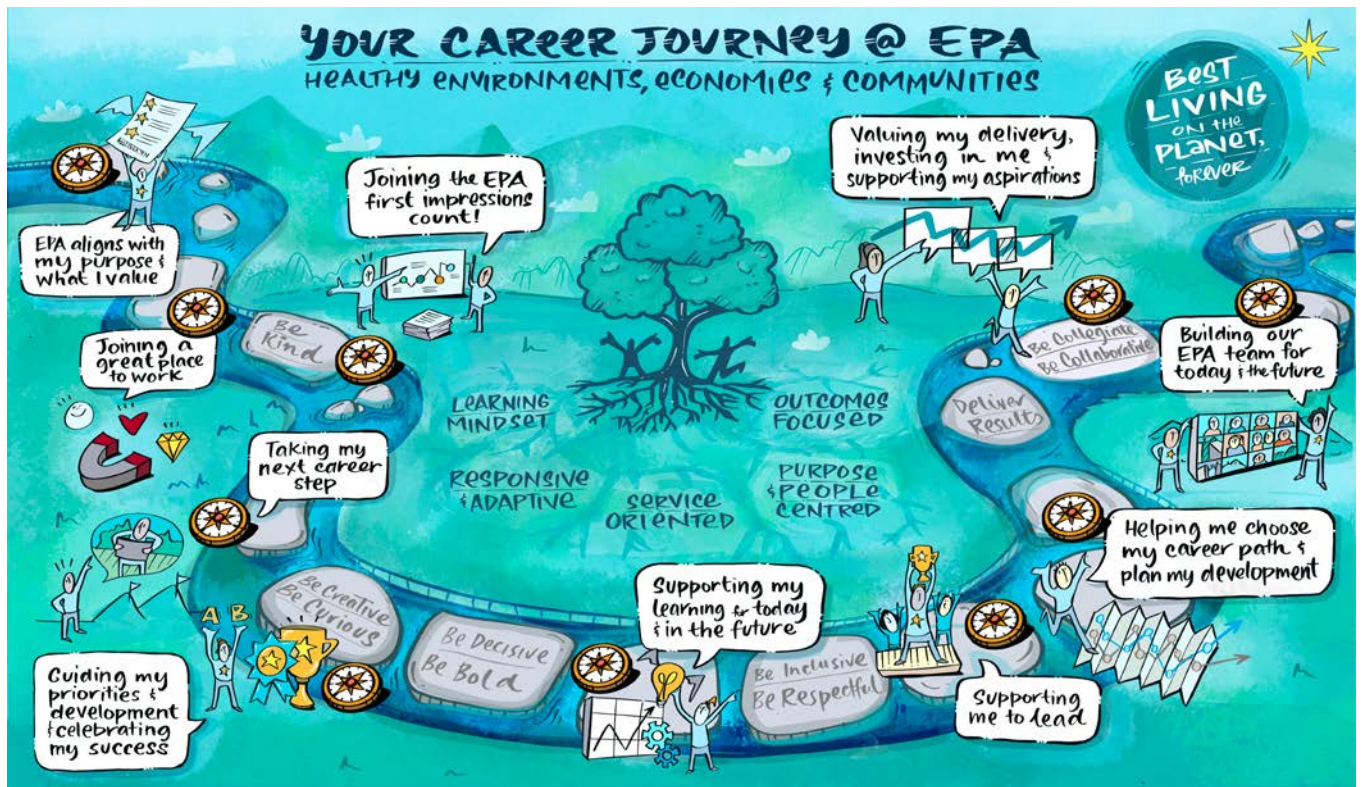 YOUR CAREER JOURNEY @ EPA
HEALTHY ENVIRONMENTS, ECONOMIES & COMMUNITIES
BEST
LIVING
ON THE
PLANET,
forever
EPA aligns with
my purpose &
what I value
Joining the EPA
first impressions
count!
Valuing my delivery,
investing in me &
supporting my aspirations
Joining a
great place
to work
Be
Kind
Be Collegiate
Be Collaborative
Building our
EPA team for
today & the future
LEARNING
MINDSET
OUTCOMES
FOCUSED
Deliver
Results
Taking my
next career
step
RESPONSIVE
& ADAPTIVE
SERVICE
ORIENTED
PURPOSE
& PEOPLE
CENTRED
Helping me choose
my career path &
plan my development
Be Creative
Be Curious
A B
Be Decisive
Be Bold
Supporting my
learning for today
& in the future
Be Inclusive
Be Respectful
Supporting
me to lead
Guiding my
priorities &
development
& celebrating
my success